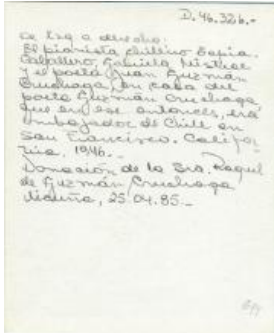 D. 46.326.-
de izq a derecha:
El pianista chileno Tapia.
Caballero, Gabriela Mistral
y el poeta Juan Guzmán
Cruchaga, en casa del
poeta Guzmán Cruchaga,
que en ese entonces, era
embajador de Chile en
San Francisco. Califor
nia, 1946.-
Donación de la Sra. Raquel
de Guzmán Cruchaga
Vicuña, 25.04.85.-